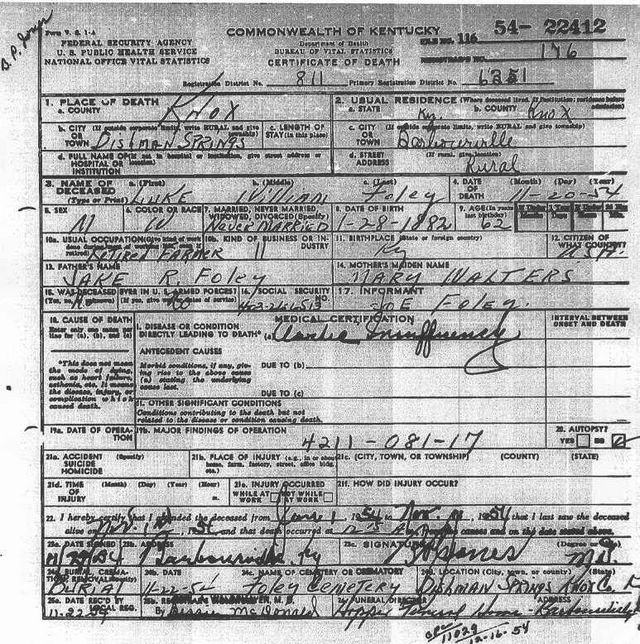 B. P. Jones
Form V. S. 1-A
FEDERAL SECURITY AGENCY
U. S. PUBLIC HEALTH SERVICE
NATIONAL OFFICE VITAL STATISTICS
COMMONWEALTH OF KENTUCKY
Department of Health
BUREAU OF VITAL STATISTICS
CERTIFICATE OF DEATH
54- 22412
FILE NO. 116
REGISTRAR'S NO. 176
Registration District No. 811 Primary Registration District No. 6351
1. PLACE OF DEATH
a. COUNTY Knox
2. USUAL RESIDENCE (Where deceased lived. If institution: residence before
a. STATE Ky. b. COUNTY Knox
b. CITY (If outside corporate limits, write RURAL and give
OR TOWN Dishman Springs
c. LENGTH OF STAY (in this place)
c. CITY (If outside corporate limits, write RURAL and give township)
OR TOWN Barbourville
d. FULL NAME OF (If not in hospital or institution, give street address or location)
HOSPITAL OR INSTITUTION
d. STREET ADDRESS (If rural, give location)
Rural
3. NAME OF DECEASED (Type or Print)
a. (First) b. (Middle) c. (Last)
Luke Foley
4. DATE OF DEATH (Month) (Day) (Year)
20-54
5. SEX
M
6. COLOR OR RACE
W
7. MARRIED, NEVER MARRIED, WIDOWED, DIVORCED (Specify)
Never Married
8. DATE OF BIRTH
1-28-1882
9. AGE (In years last birthday)
62
10a. USUAL OCCUPATION (Give kind of work done during most of working life, even if retired)
Retired Farmer
10b. KIND OF BUSINESS OR INDUSTRY
11
11. BIRTHPLACE (State or foreign country)
Ky
12. CITIZEN OF WHAT COUNTRY?
USA.
13. FATHER'S NAME
Jake R. Foley
14. MOTHER'S MAIDEN NAME
Mary Walters
15. WAS DECEASED EVER IN U. S. ARMED FORCES?
16. SOCIAL SECURITY
17. INFORMANT
Foley.
18. CAUSE OF DEATH
Enter only one cause per line for (a), (b), and (c)
MEDICAL CERTIFICATION
INTERVAL BETWEEN ONSET AND DEATH
I. DISEASE OR CONDITION DIRECTLY LEADING TO DEATH* (a)
*This does not mean the mode of dying, such as heart failure, asthenia, etc. It means the disease, injury, or complication which caused death.
ANTECEDENT CAUSES
Morbid conditions, if any, giving rise to the above cause (a) stating the underlying cause last.
DUE TO (b)
DUE TO (c)
II. OTHER SIGNIFICANT CONDITIONS
Conditions contributing to the death but not related to the disease or condition causing death.
19a. DATE OF OPERATION
19b. MAJOR FINDINGS OF OPERATION
4211-081-17
20. AUTOPSY?
YES NO
21a. ACCIDENT SUICIDE HOMICIDE (Specify)
21b. PLACE OF INJURY (e.g., in or about home, farm, factory, street, office bldg., etc.)
21c. (CITY, TOWN, OR TOWNSHIP) (COUNTY) (STATE)
21d. TIME OF INJURY (Month) (Day) (Year) (Hour)
21e. INJURY OCCURRED
WHILE AT WORK NOT WHILE AT WORK
21f. HOW DID INJURY OCCUR?
22. I hereby certify that I attended the deceased from that I last saw the deceased
alive on and that death occurred at causes and on the date stated above.
Barbourville Ky
23c. SIGNATURE
Jones M.D.
24a. BURIAL, CREMATION, REMOVAL (Specify)
Burial
24b. DATE
11-22-54
24c. NAME OF CEMETERY OR CREMATORY
Foley Cemetery
24d. LOCATION (City, town, or county) (State)
Dishman Springs Knox Co.
25a. DATE REC'D BY LOCAL REG.
McDonald
FUNERAL DIRECTOR
Funeral Home - Barbourville Ky
12-16-54